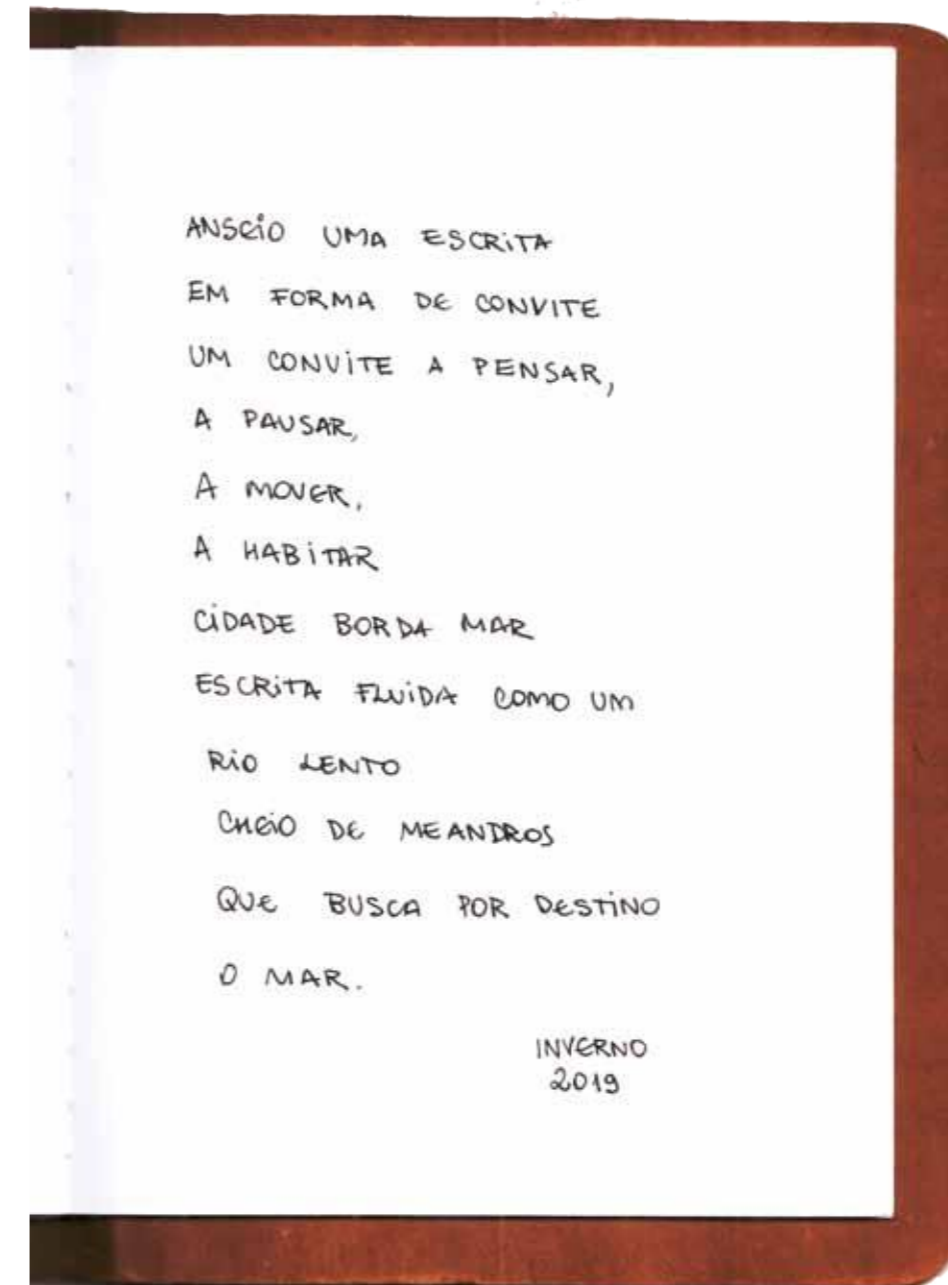 ANSEIO UMA ESCRITA
EM FORMA DE CONVITE
UM CONVITE A PENSAR,
A PAUSAR,
A MOVER,
A HABITAR
CIDADE BORDA MAR
ESCRITA FLUIDA COMO UM
RIO LENTO
CHEIO DE MEANDROS
QUE BUSCA POR DESTINO
O MAR.
INVERNO
2019